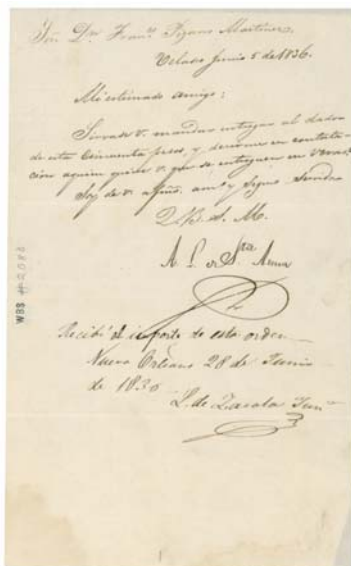 Sor. Dn. Franco. Pizarro Martinez.
Velasco Junio 5 de 1836.
Mi estimado amigo:
Sirvase v. mandar entregar al dador
de esta cincuenta pesos, y decirme en contesta-
cion a quien quiere v. que se entreguen en Veracz.
Soy de v. afmo. amo. y seguro servidor
Q. B. S. M.
A. L. de Sta. Anna
Recibi el importe de esta orden
Nueva Orleans 28 de Junio
de 1836
L. de Zavala Junr.
WBS # 2080